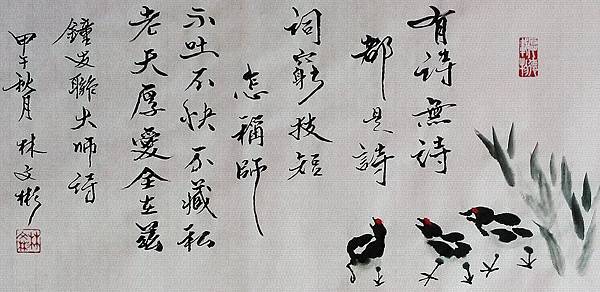 有詩無詩
都是詩
詞窮技短
怎稱師
不吐不快不藏私
老天厚愛全在茲
鐘友聯大師詩
甲午秋月 林文彬